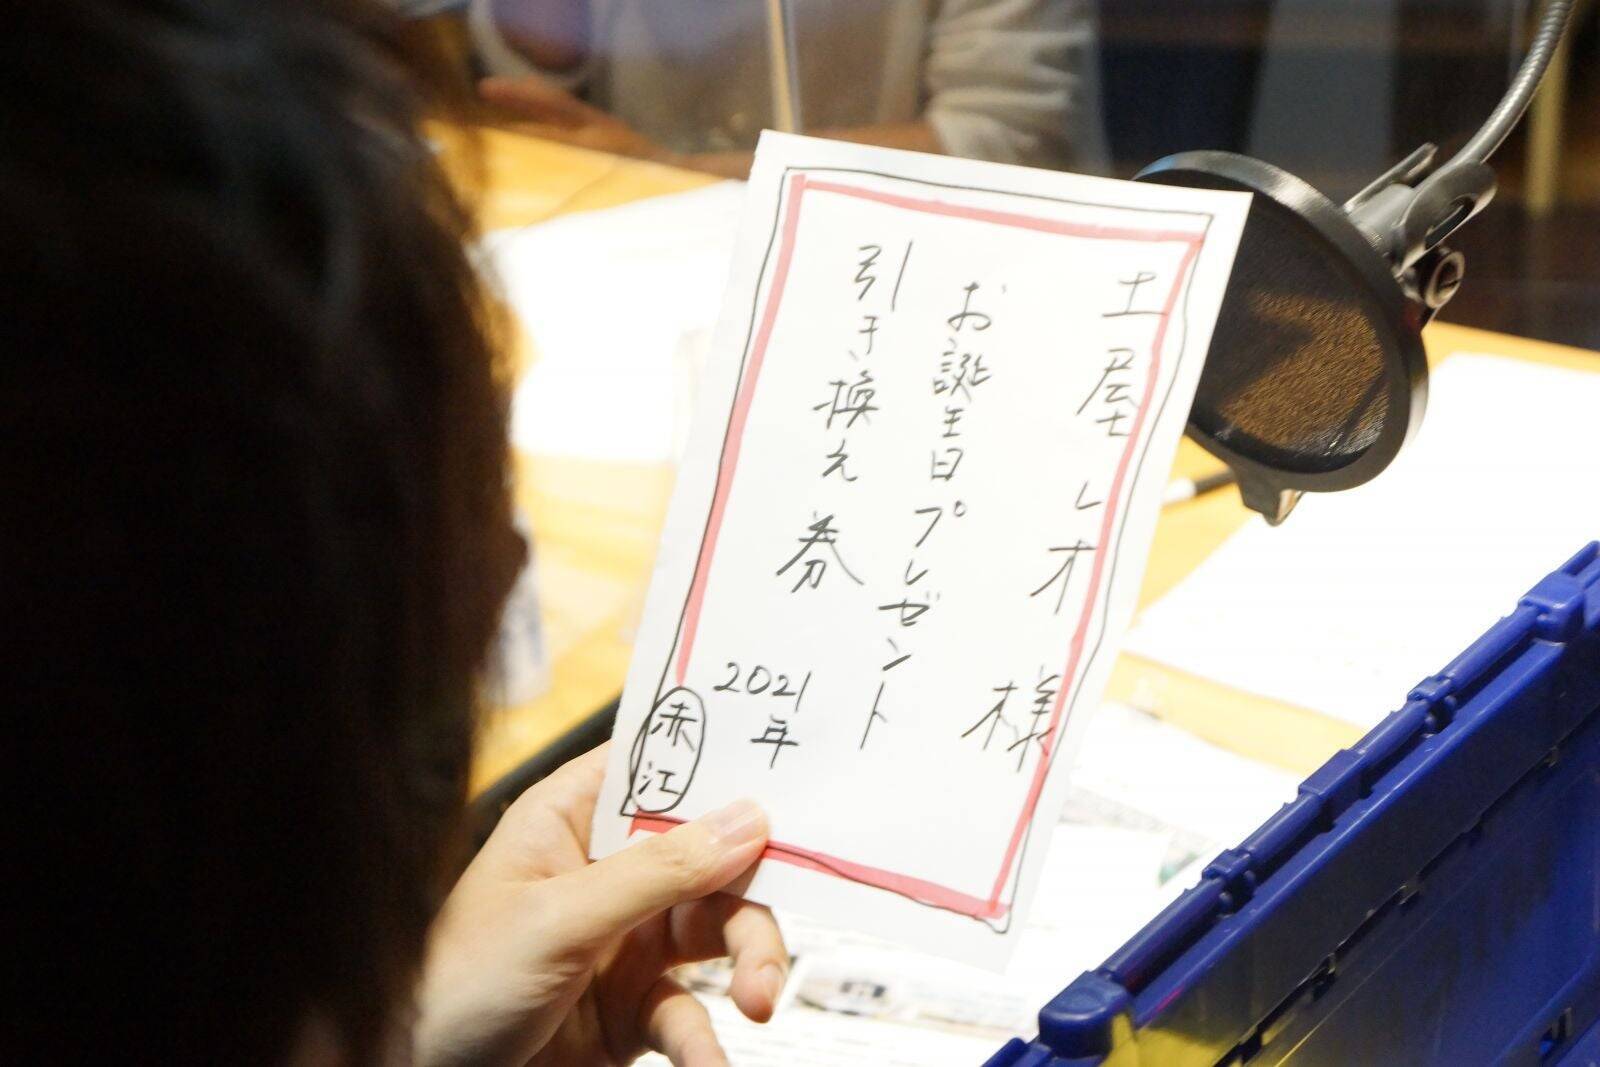 土屋レオ様
お誕生日プレゼント
引き換え券
2021年
赤江